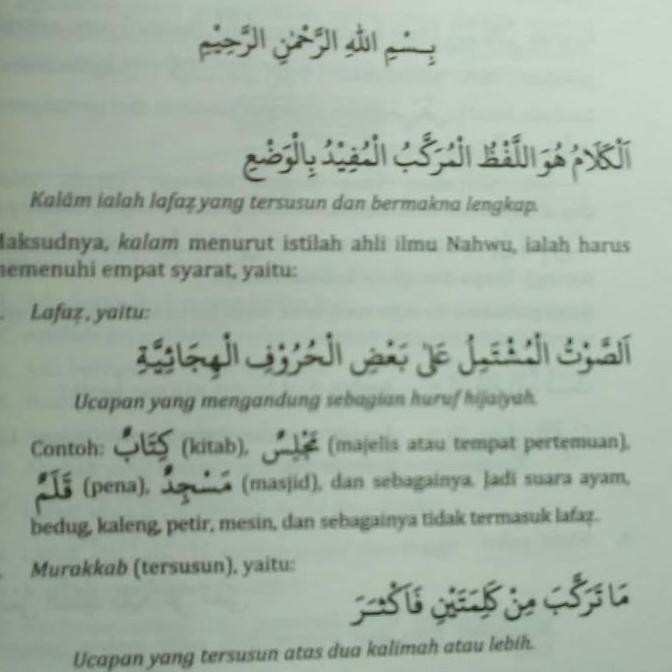 بِسْمِ اللهِ الرَّحْمٰنِ الرَّحِيْمِ
اَلْكَلَامُ هُوَ اللَّفْظُ الْمُرَكَّبُ الْمُفِيْدُ بِالْوَضْعِ
Kalâm ialah lafaẓ yang tersusun dan bermakna lengkap.
Maksudnya, kalam menurut istilah ahli ilmu Nahwu, ialah harus
memenuhi empat syarat, yaitu:
Lafaẓ, yaitu:
اَلصَّوْتُ الْمُشْتَمِلُ عَلٰى بَعْضِ الْحُرُوْفِ الْهِجَائِيَّةِ
Ucapan yang mengandung sebagian huruf hijaiyah.
Contoh: كِتَابٌ (kitab), مَجْلِسٌ (majelis atau tempat pertemuan),
قَلَمٌ (pena), مَسْجِدٌ (masjid), dan sebagainya. Jadi suara ayam,
bedug, kaleng, petir, mesin, dan sebagainya tidak termasuk lafaẓ.
Murakkab (tersusun), yaitu:
مَا تَرَكَّبَ مِنْ كَلِمَتَيْنِ فَاَكْثَرَ
Ucapan yang tersusun atas dua kalimah atau lebih.